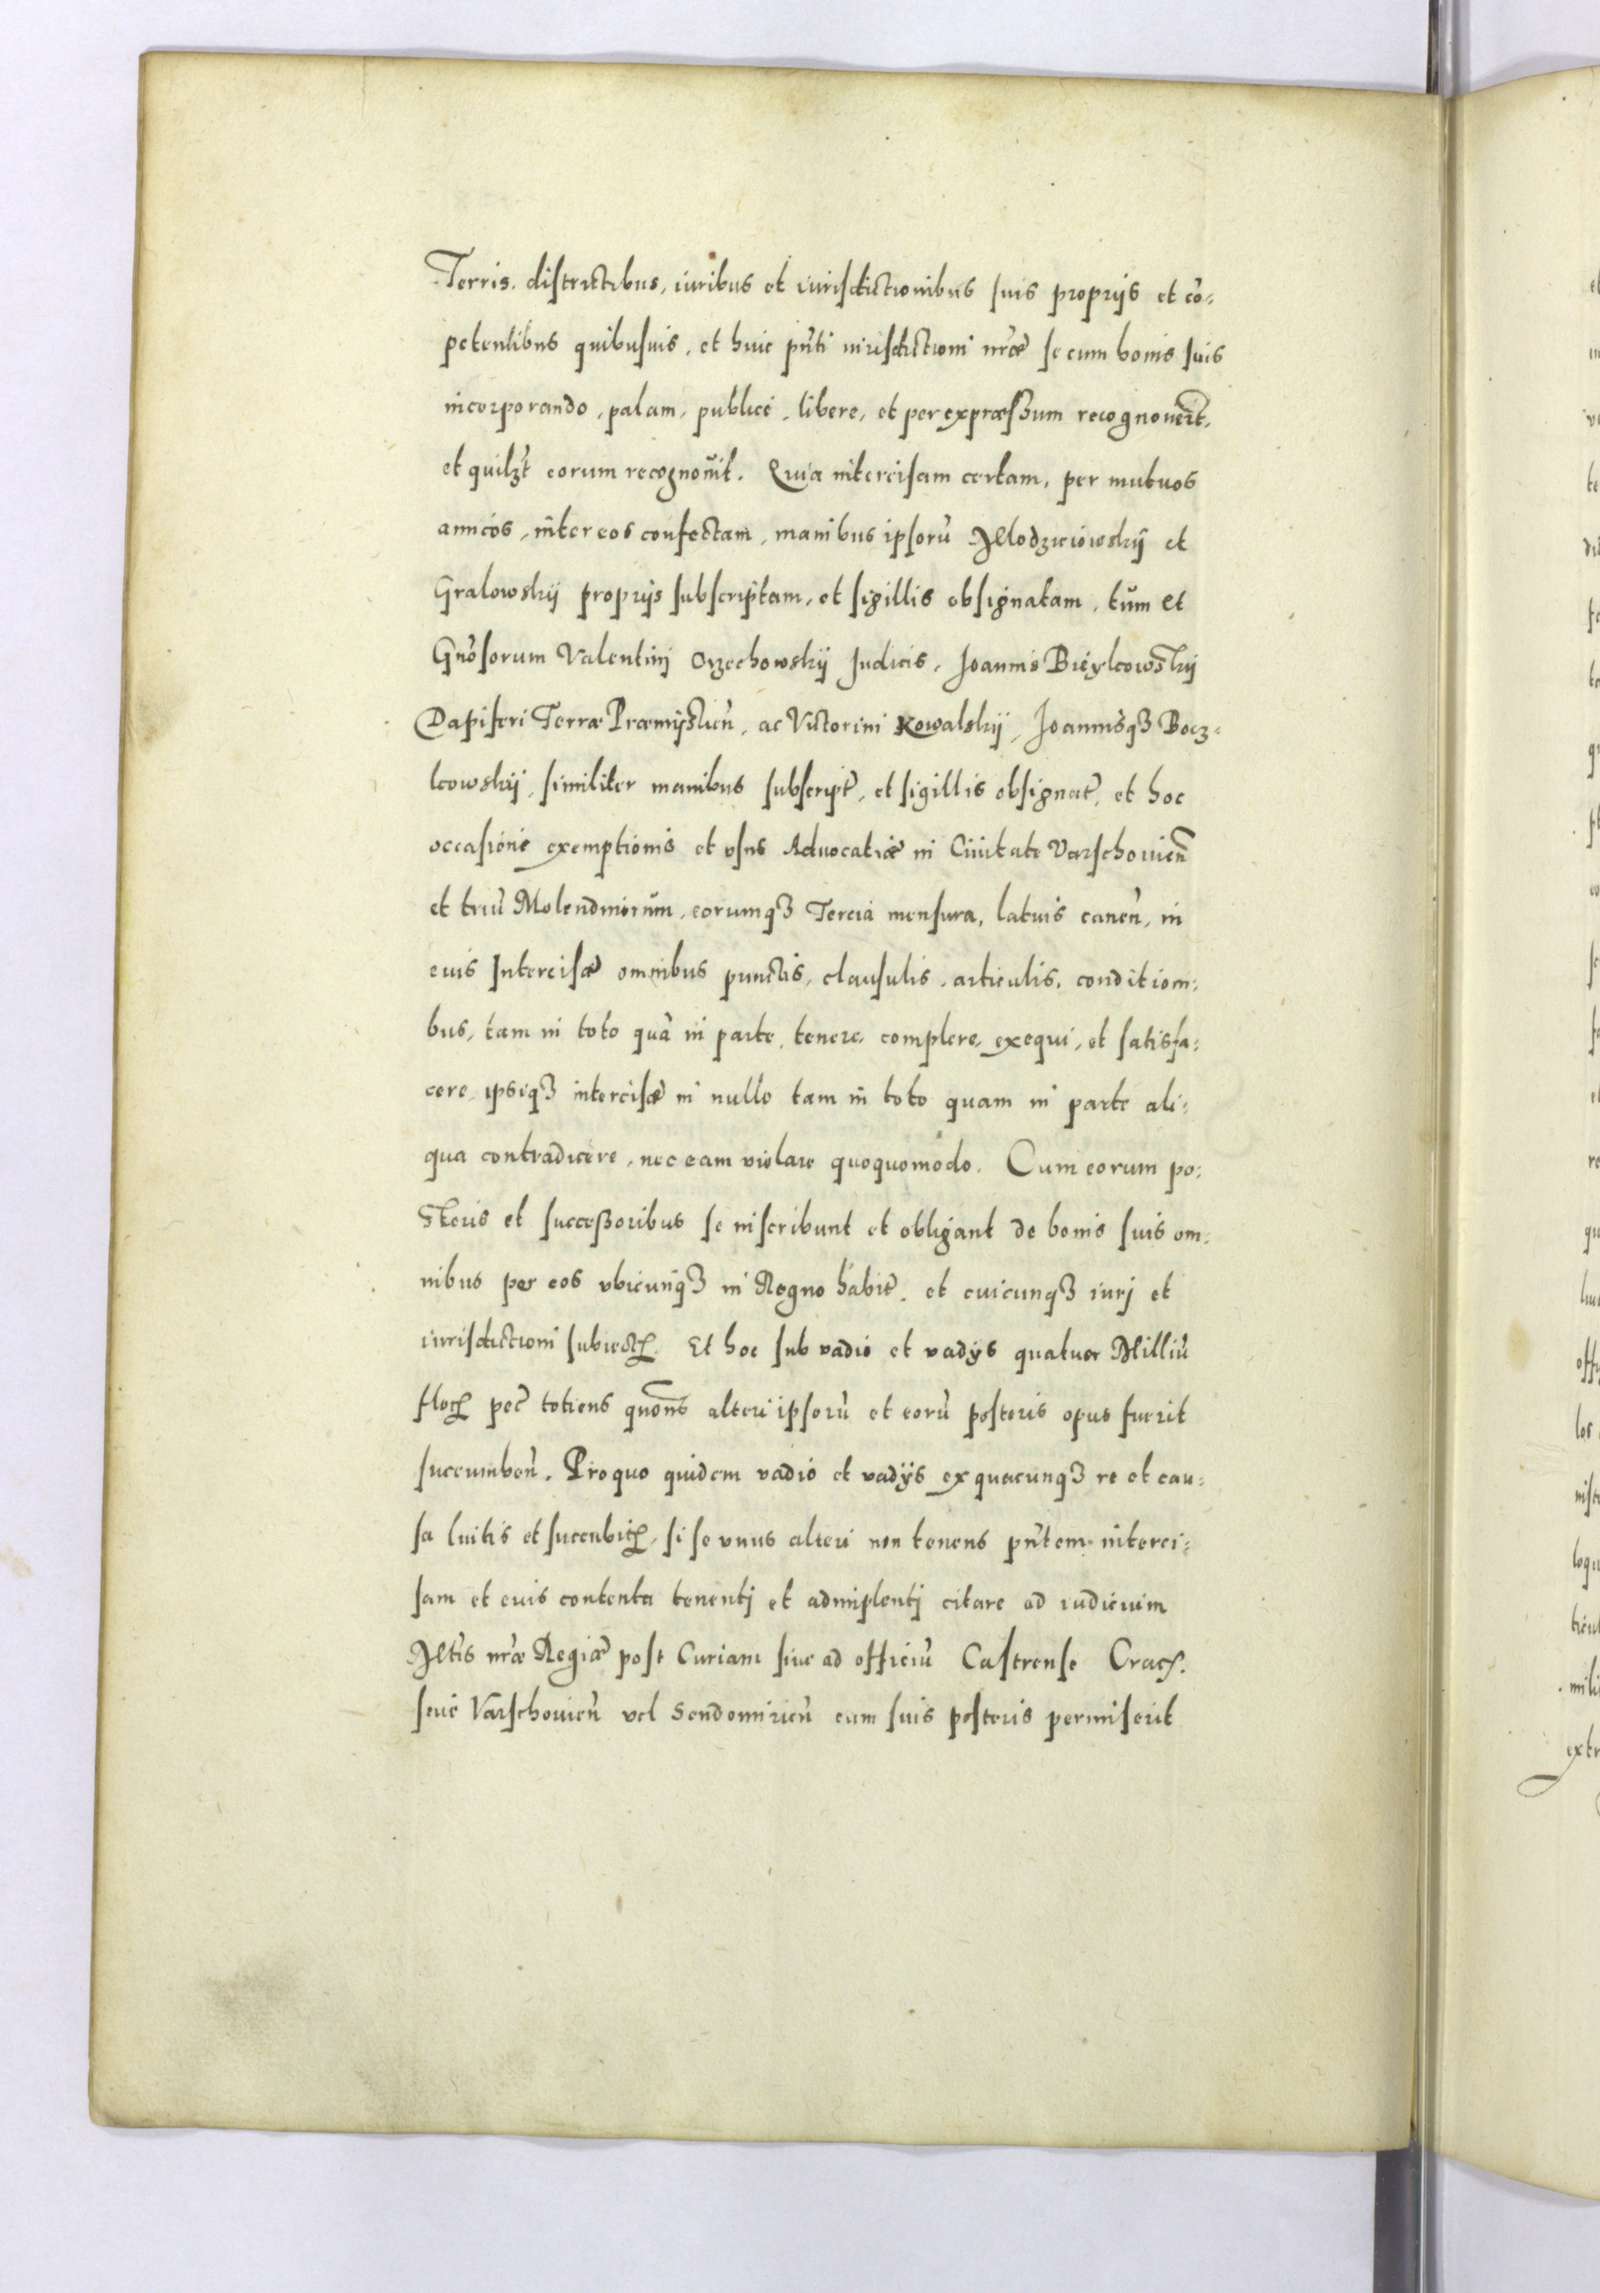 Terris, districtibus, iuribus et iurisdictionibus suis proprijs et cõ-
petentibus quibusuis, et huic pñti iurisdictioni nr̃æ se cum bonis suis
incorporando, palam, publicè, libere, et per expræssum recognouerũt,
et quilꝫt eorum recognouit. Quia intercisam certam, per mutuos
amicos, inter eos confectam, manibus ipsorũ Mlodzieiowskij et
Gralowskij proprijs subscriptam, et sigillis obsignatam, tum et
Gñosorum Valentinj Orzechowskij Judicis, Joannis Bieykowskij
Dapiferi Terræ Præmyslień, ac Victorini Kowalskij, Joannisqꝫ Bocz-
kowskij, similiter manibus subscript̃, et sigillis obsignat̃, et hoc
occasione exemptionis et vsus Aduocatiæ in Ciuitate Varschouień
et triũ Molendinorum, eorumqꝫ Tercia mensura, latius canen̄, in
cuis Intercisæ omnibus punctis, clausulis, articulis, conditioni-
bus, tam in toto quã in parte, tenere, complere, exequi, et satisfa-
cere, ipsiqꝫ intercisæ in nullo tam in toto quam in parte ali-
qua contradicere, nec eam violare quoquomodo. Cum eorum po-
steris et successoribus se inscribunt et obligant de bonis suis om-
nibus per eos vbicunqꝫ in Regno habit̃, et cuicunqꝫ iurj et
iurisdictioni subiectꝝ. Et hoc sub vadio et vadijs quatuor Milliũ
floꝝ pec̃ totiens quotiens alteri ipsorũ et eorũ posteris opus fuerit
succumben̄. Pro quo quidem vadio et vadijs ex quacunqꝫ re et cau-
sa luitis et sucubitꝝ, si se vnus alteri non tenens pñtem interci-
sam et cuis contenta tenentj et adimplentj citare ad iudicium
Mt̃is nr̃æ Regiæ post Curiam siue ad officiũ Castrense Crac̃.
seue Varschouień vel Sendomirień cum suis posteris permiserit